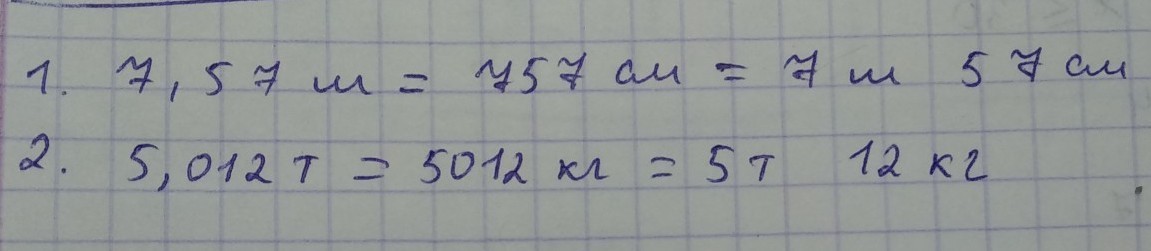 1. 7,57 м = 757 см = 7 м 57 см
2. 5,012 т = 5012 кг = 5 т 12 кг